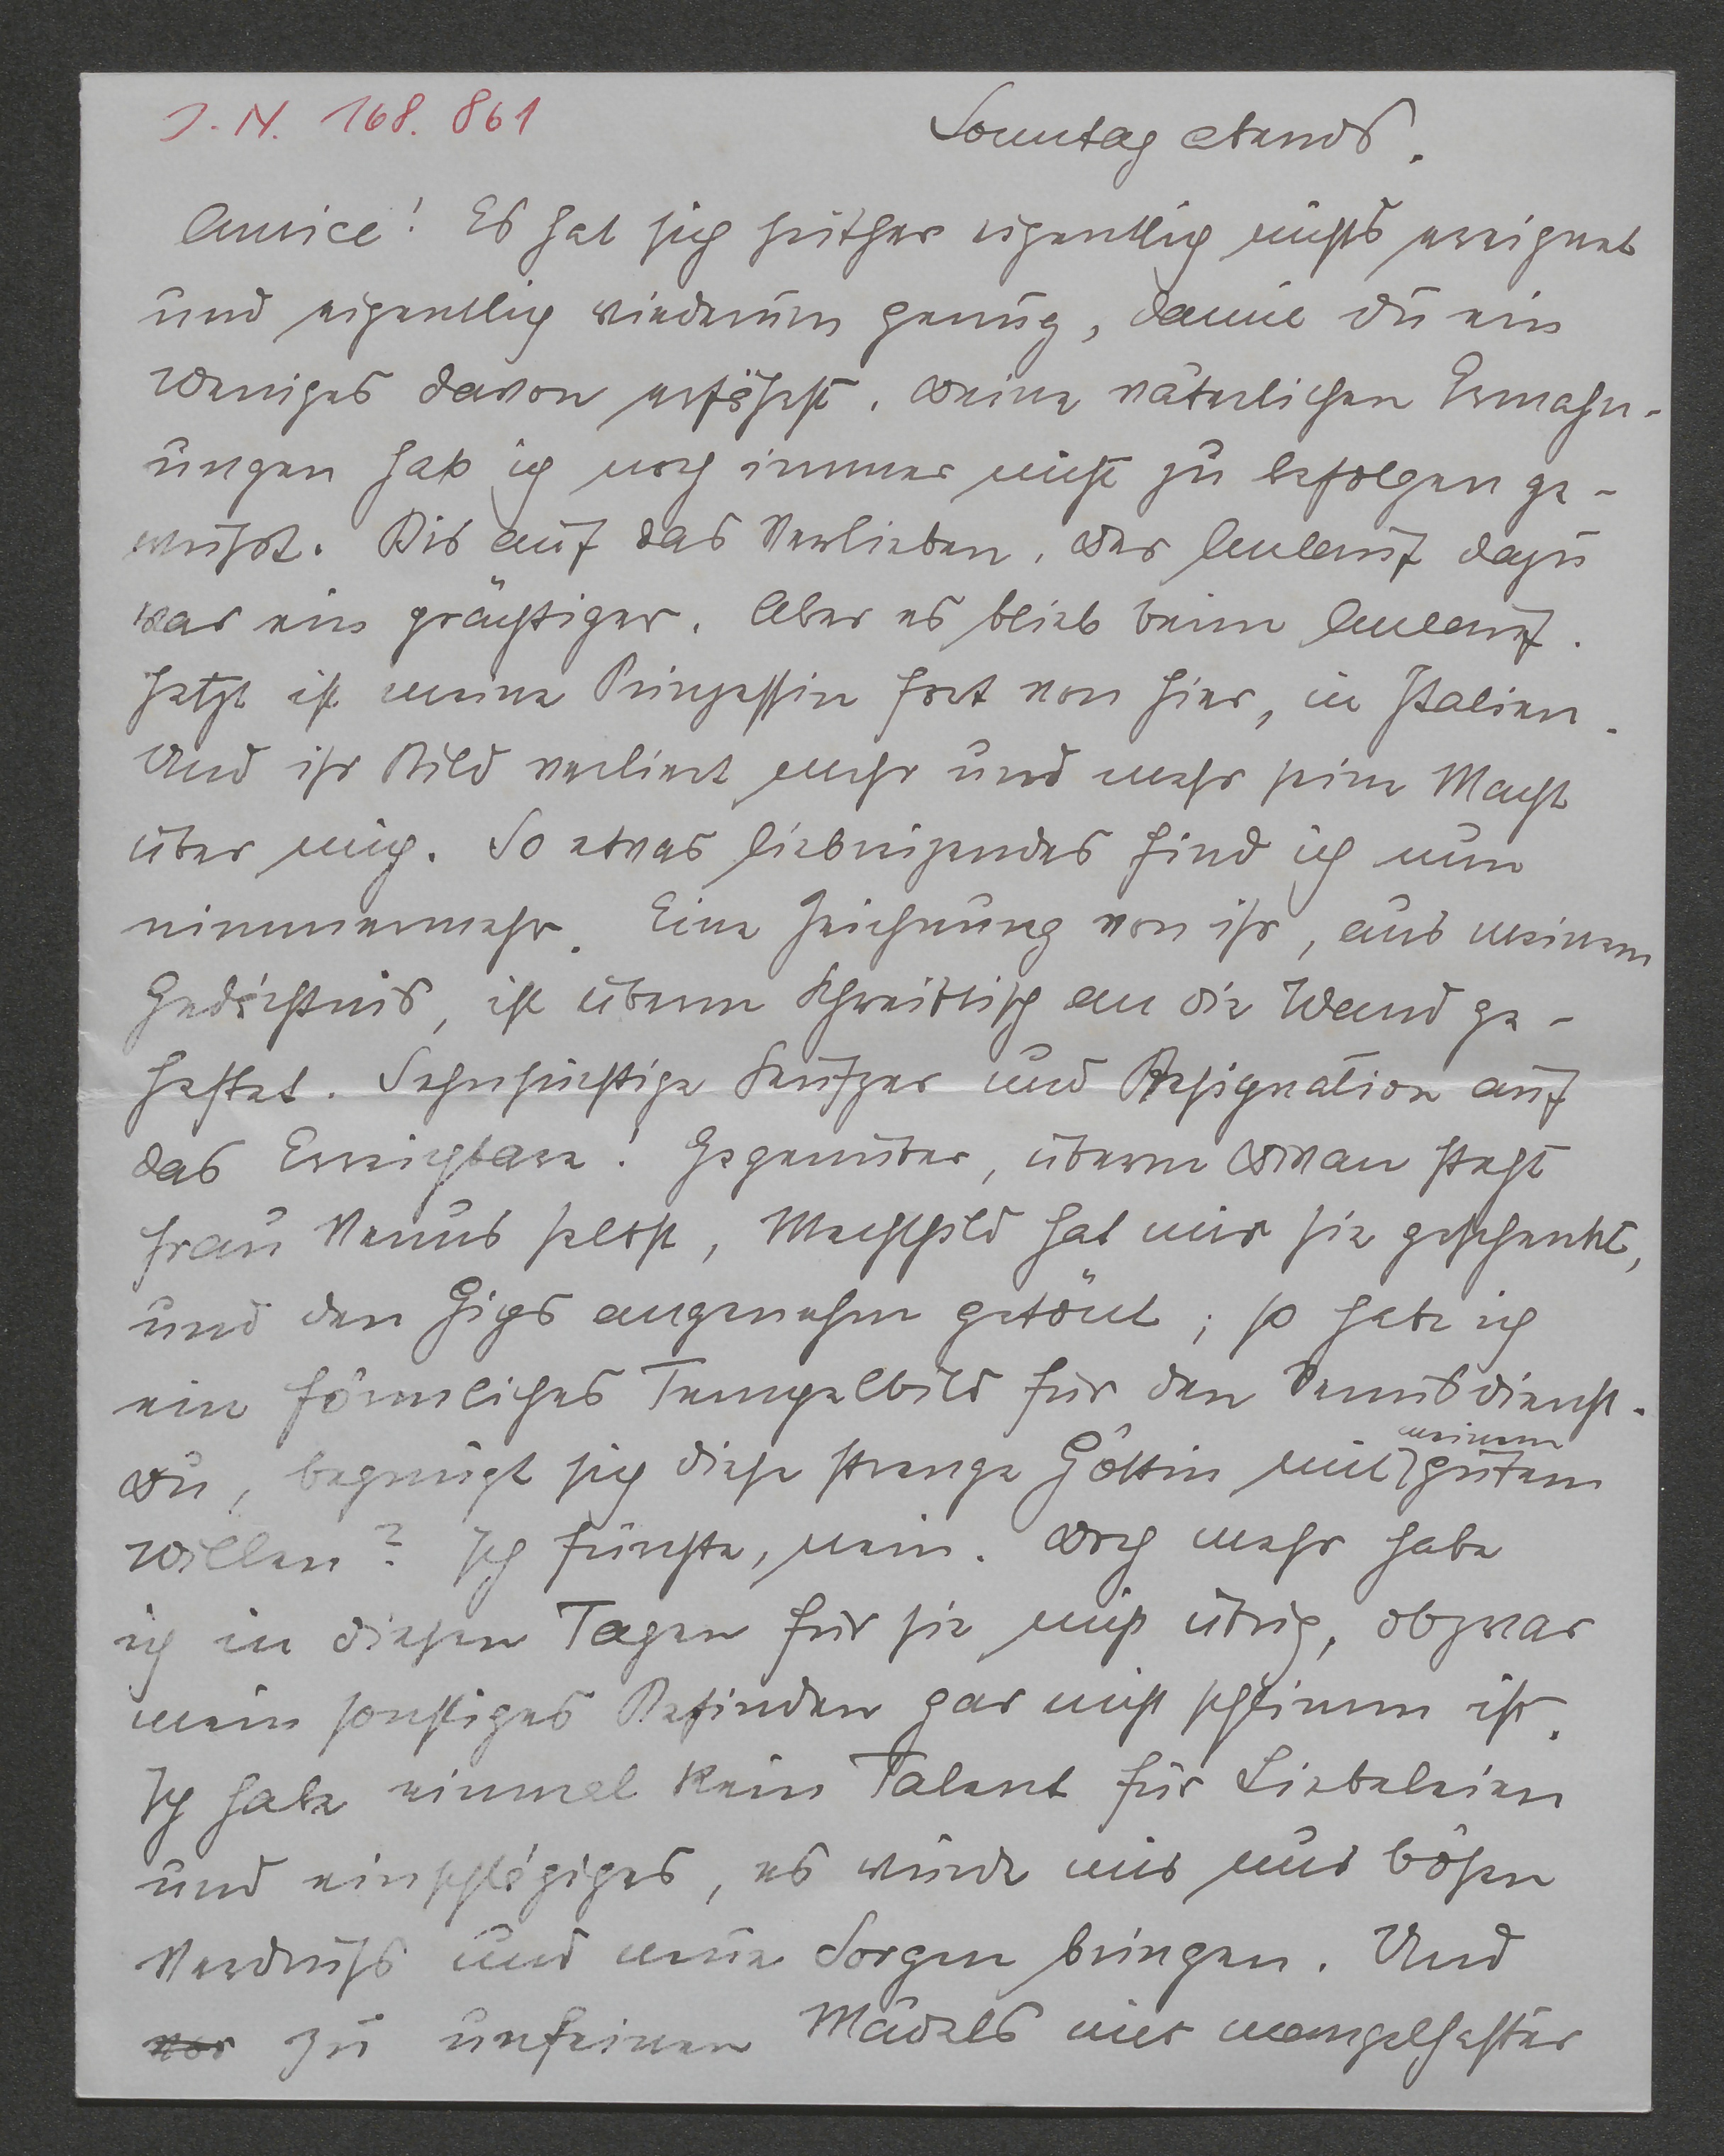 J. N. 168.861
Sonntag abends.
Amice! Es hat sich seither eigentlich nichts ereignet
und eigentlich wiederum genug, damit du ein
Weniges davon erfährst. Deine väterlichen Ermahn-
ungen hab ich noch immer nicht zu befolgen ge-
wußt. Bis auf das Verlieben. Der Anlauf dazu
war ein prächtiger. Aber es blieb beim Anlauf.
Jetzt ist meine Prinzessin fort von hier, in Italien.
Und ihr Bild verliert mehr und mehr seine Macht
über mich. So etwas liebreizendes find ich nun
nimmermehr. Eine Zeichnung von ihr, aus meinem
Gedächtnis, ist überm Schreibtisch an die Wand ge-
heftet. Sehnsüchtige Seufzer und Resignation auf
das Erreichbare! Gegenüber, überm Divan steht
Frau Venus selbst, Mechthild hat mir sie geschenkt,
und den Gips angenehm getönt; so habe ich
ein förmliches Tempelbild für den Venusdienst.
Du, begnügt sich diese strenge Göttin mit meinem guten
Willen? Ich fürchte, nein. Doch mehr habe
ich in diesen Tagen für sie nicht übrig, obzwar
mein sonstiges Befinden gar nicht schlimm ist.
Ich habe einmal kein Talent für Liebeleien
und einschlägiges, es würde mir nur bösen
Verdruß und neue Sorgen bringen. Und
vor zu unfeinen Mädels mit mangelhafter